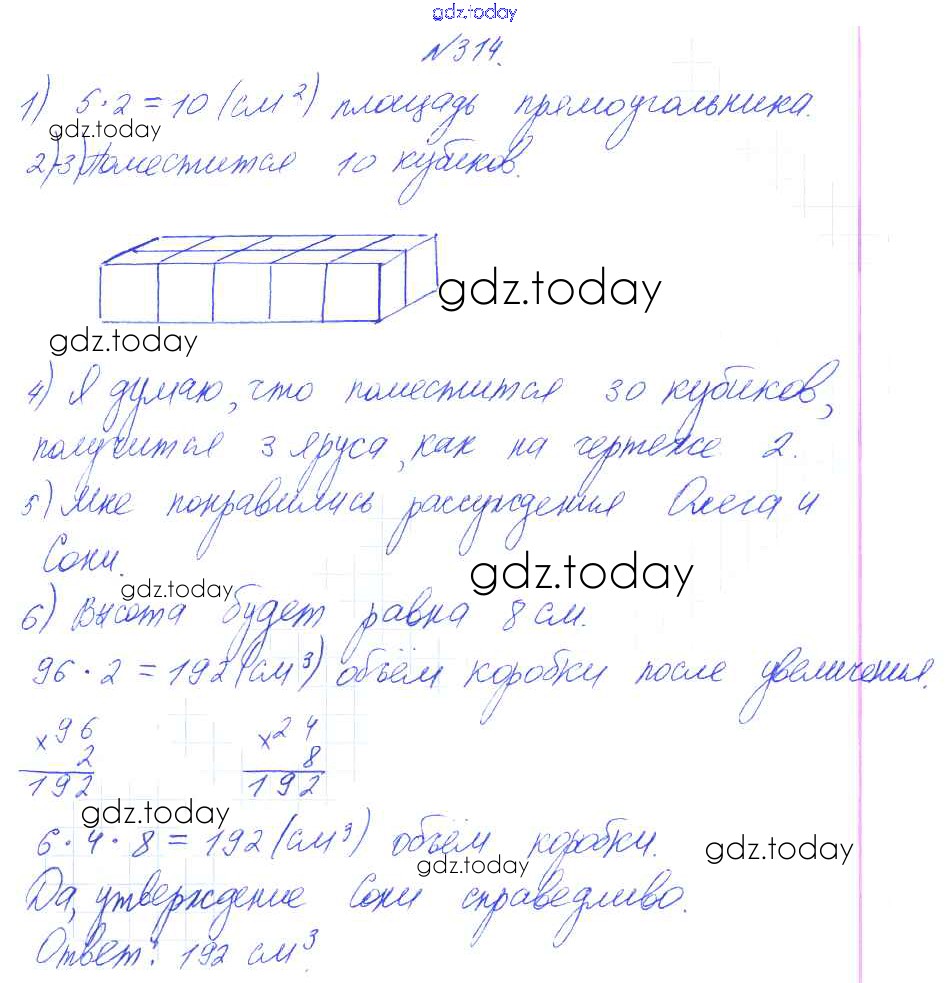 gdz.today
№314.
1) 5·2=10 (см²) площадь прямоугольника.
gdz.today
2)-3) Поместится 10 кубиков.
gdz.today
gdz.today
4) Я думаю, что поместится 30 кубиков,
получится 3 яруса, как на чертеже 2.
5) Мне понравились рассуждения Олега и
Сони.
gdz.today
gdz.today
6) Высота будет равна 8 см.
96·2=192(см³) объём коробки после увеличения.
×96 ×24
2 8
192 192
gdz.today
6·4·8=192(см³) объём коробки.
gdz.today
gdz.today
Да, утверждение Сони справедливо.
Ответ: 192 см³.